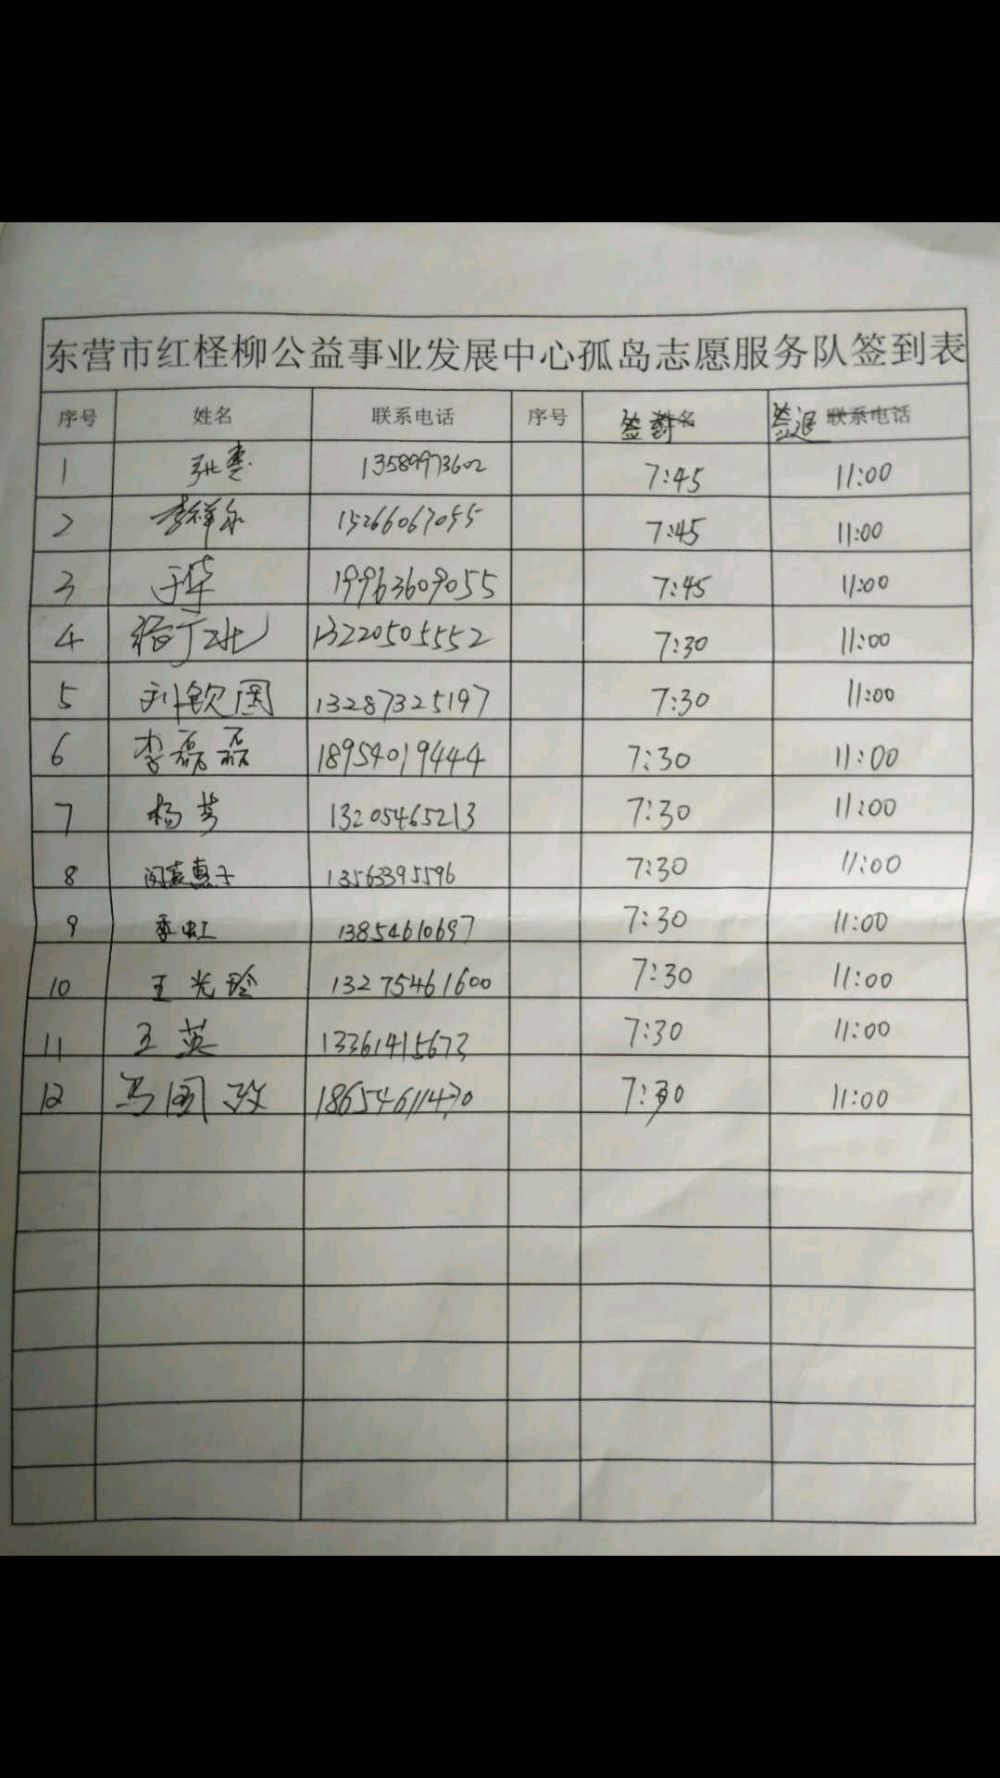 东营市红柽柳公益事业发展中心孤岛志愿服务队签到表
序号 姓名 联系电话 序号 签到 姓名 签退 联系电话
1 13589973602 7:45 11:00
2 李祥永 15266067055 7:45 11:00
3 于华 19963609055 7:45 11:00
4 13220505552 7:30 11:00
5 刘钦国 13287325197 7:30 11:00
6 李磊磊 18954019444 7:30 11:00
7 杨芳 13205465213 7:30 11:00
8 13563395596 7:30 11:00
9 季虹 13854610697 7:30 11:00
10 王光玲 13275461600 7:30 11:00
11 王英 13361415673 7:30 11:00
12 马国政 18654611470 7:30 11:00